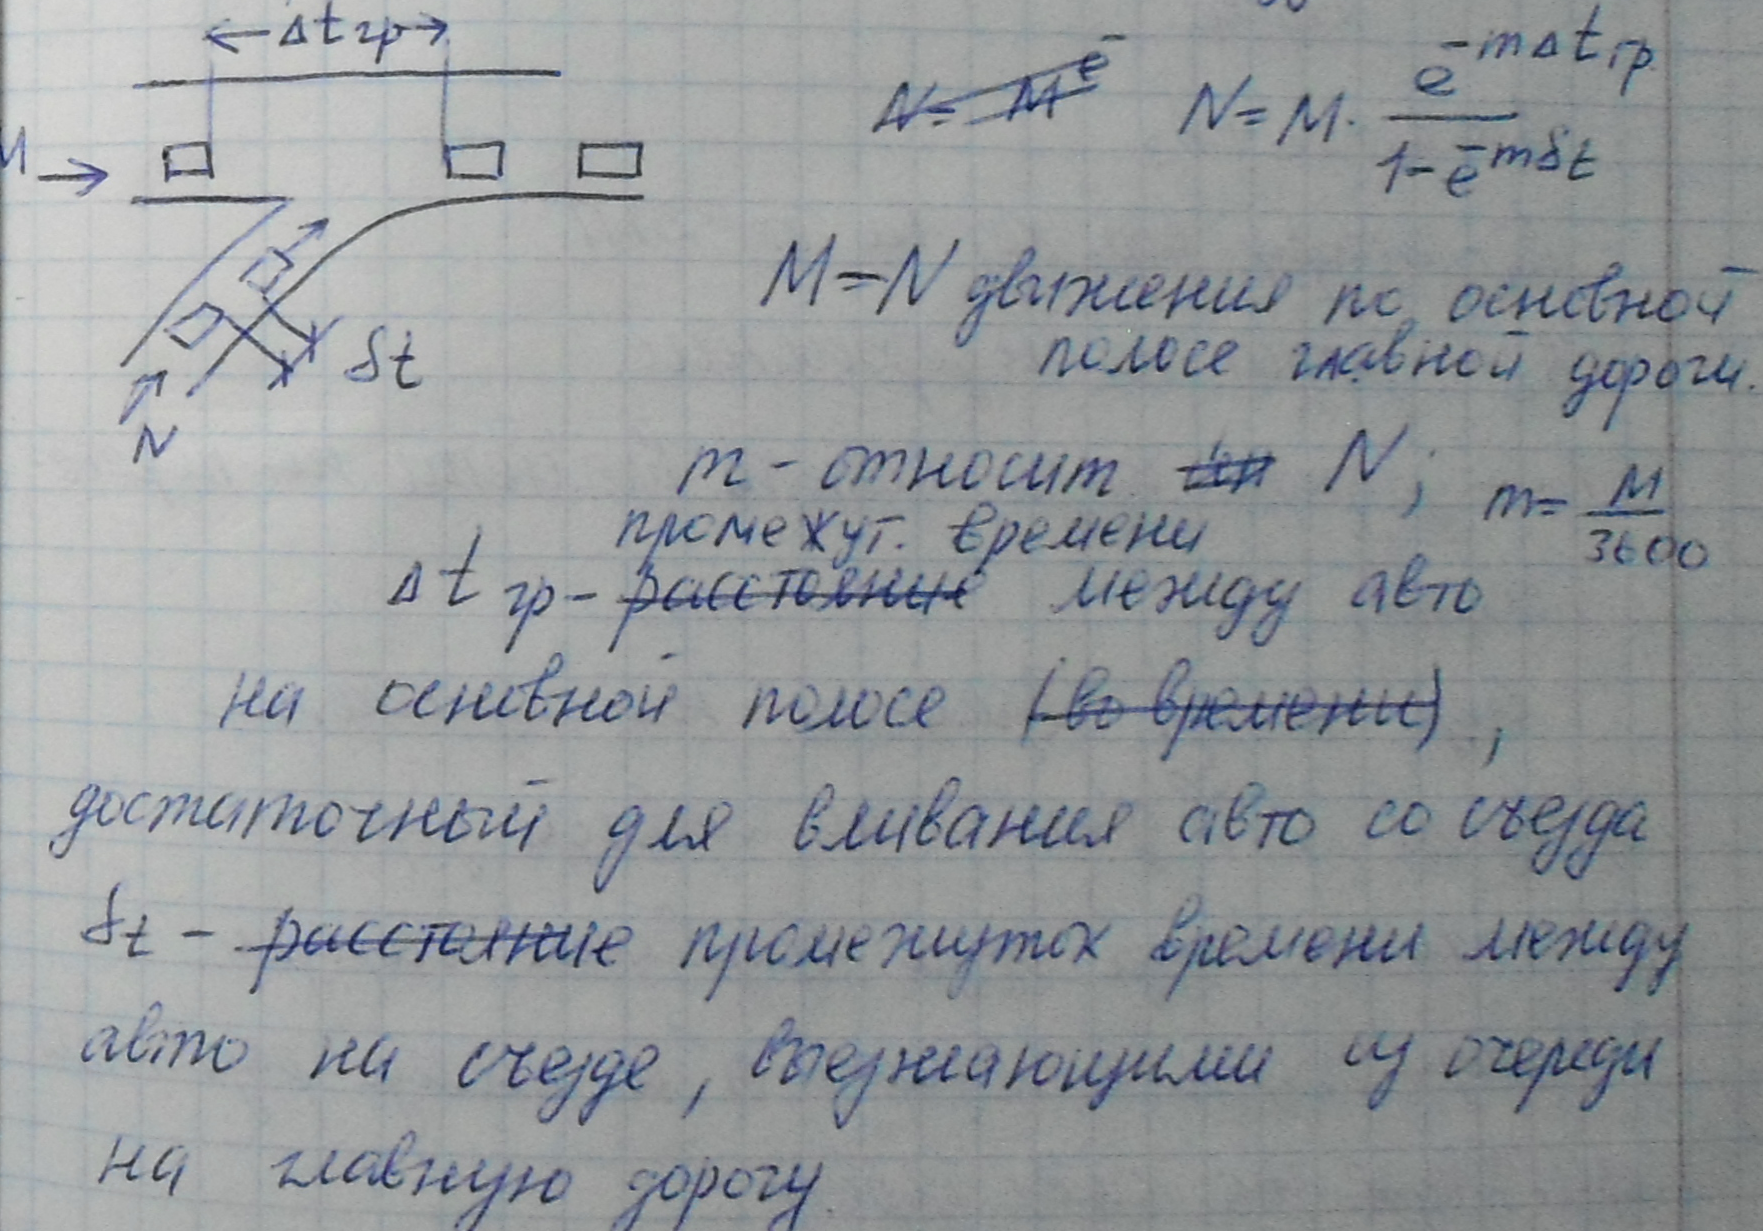 Δt гр
N = M e⁻
N = M · e^(-mΔt гр.) / (1 - e^(-mδt))
M
M = N движения по основной
полосе главной дороги.
δt
N
m - относит. N; m = M / 3600
промежут. времени
Δt гр - расстояние между авто
на основной полосе (во времени),
достаточный для вливания авто со съезда
δt - расстояние промежуток времени между
авто на съезде, въезжающими из очереди
на главную дорогу